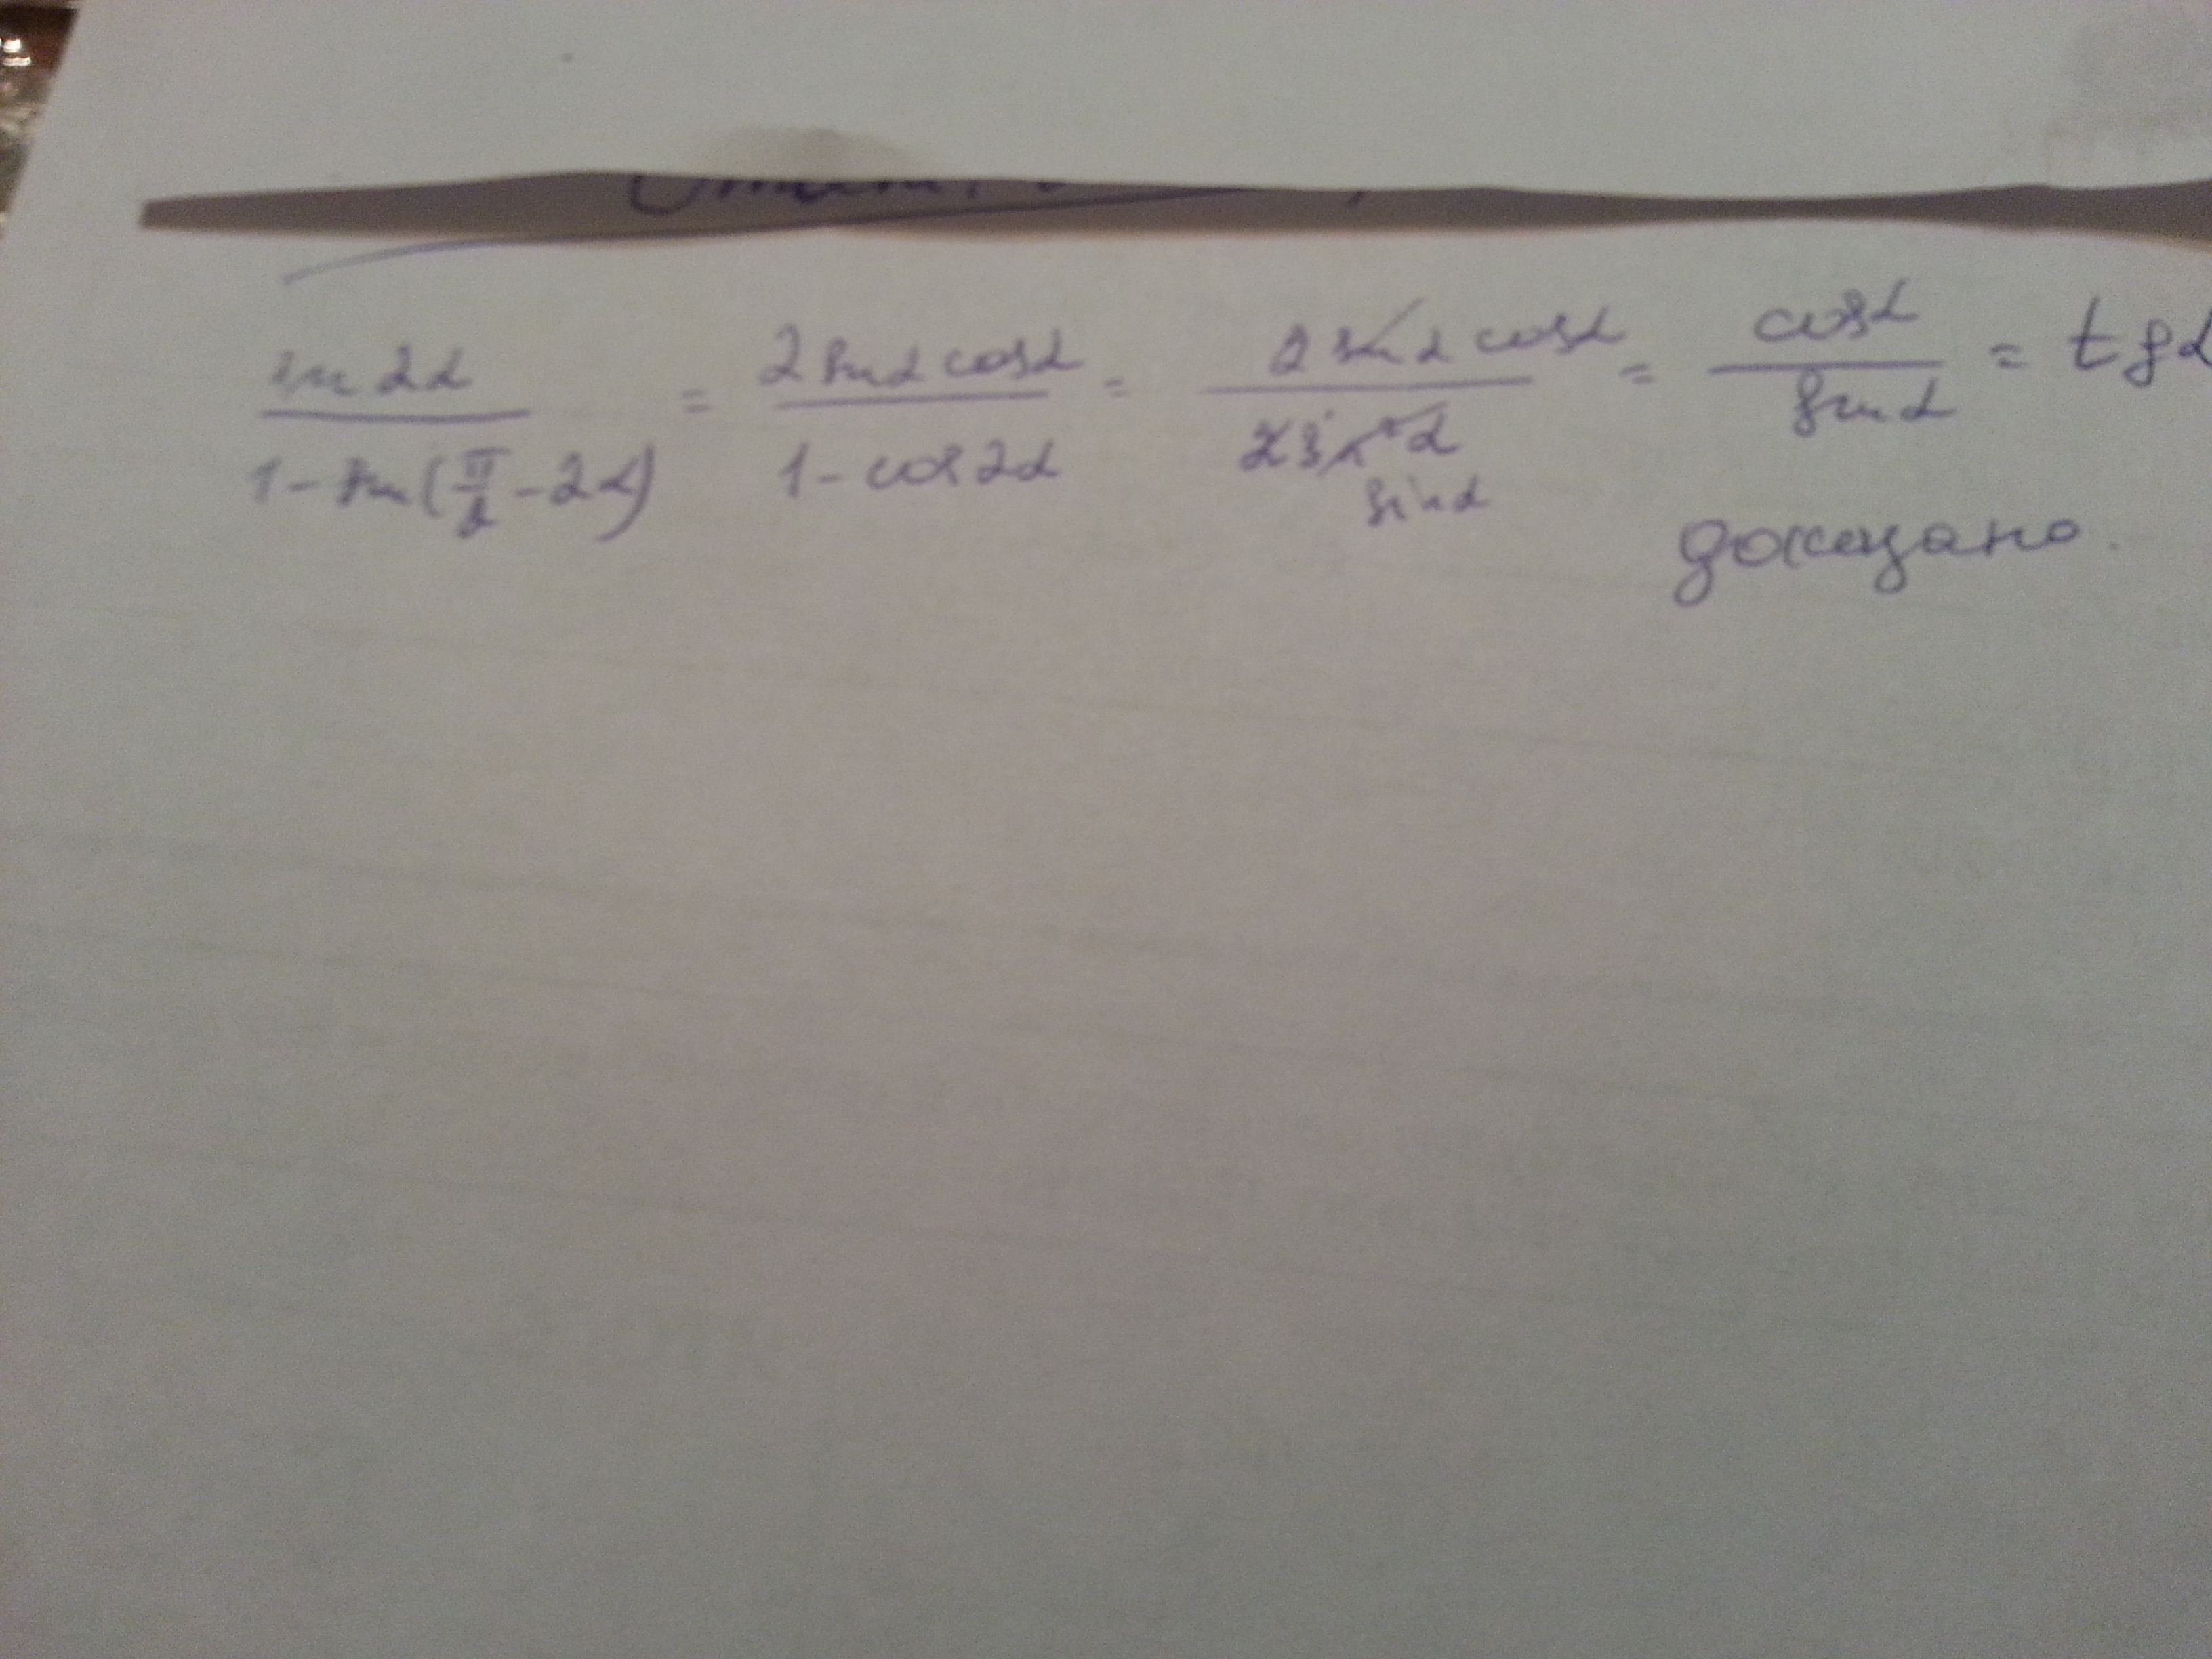 sin 2α / (1 - sin(π/2 - 2α)) = 2 sin α cos α / (1 - cos 2α) = 2 sin α cos α / (2 sin² α) sin α = cos α / sin α = tg α
доказано.